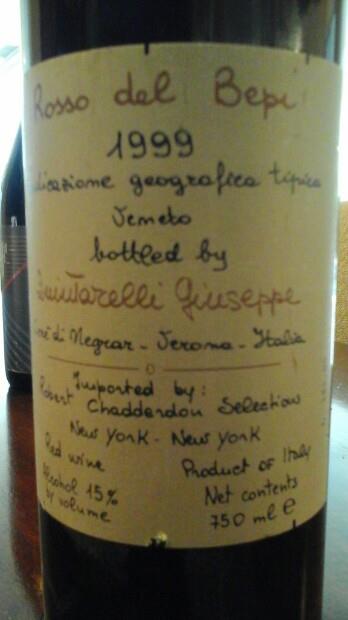 Rosso del Bepi
1999
dicazione geografica tipica
Veneto
bottled by
Quintarelli Giuseppe
di Negrar - Verona - Italia
Imported by:
Robert Chadderdon Selection
New York - New York
Red wine
Alcohol 15%
by volume
Product of Italy
Net contents
750 ml e